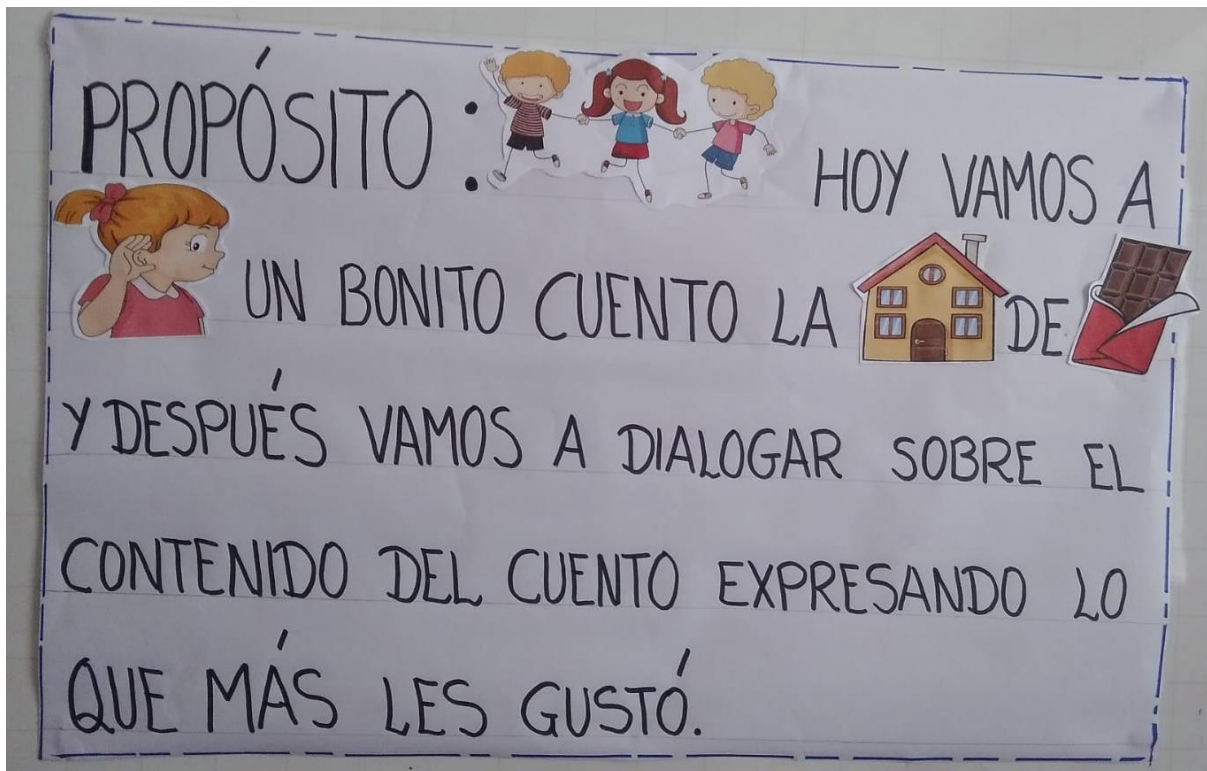 PROPÓSITO : HOY VAMOS A
UN BONITO CUENTO LA DE
Y DESPUÉS VAMOS A DIALOGAR SOBRE EL
CONTENIDO DEL CUENTO EXPRESANDO LO
QUE MÁS LES GUSTÓ.